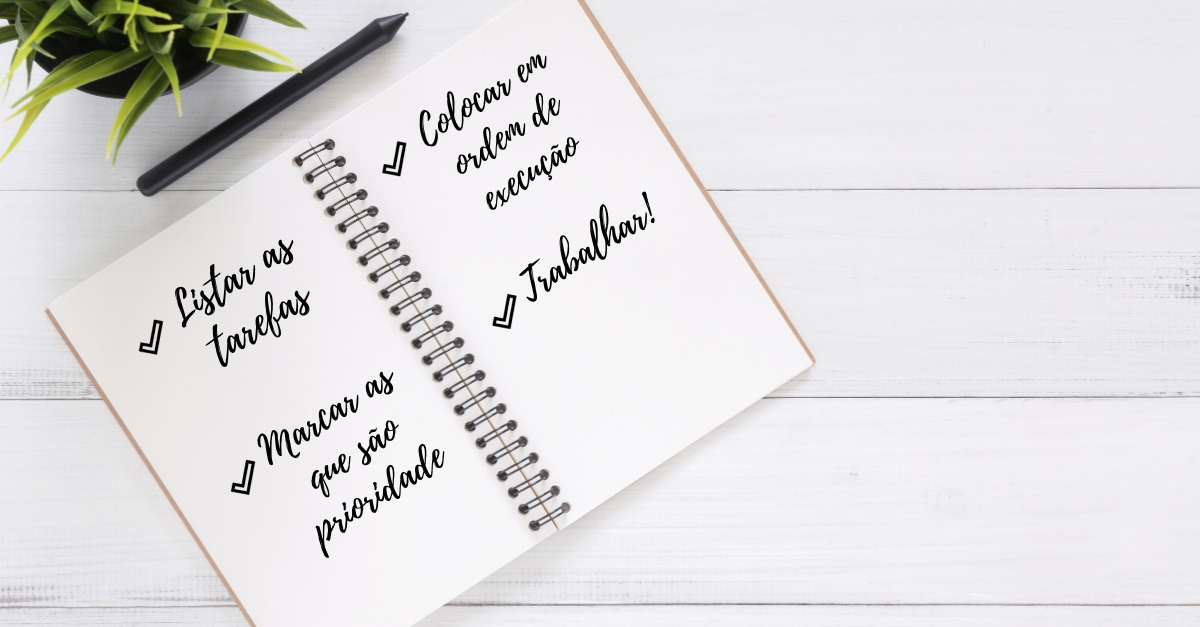 Listar as
tarefas
Marcar as
que são
prioridade
Colocar em
ordem de
execução
Trabalhar!